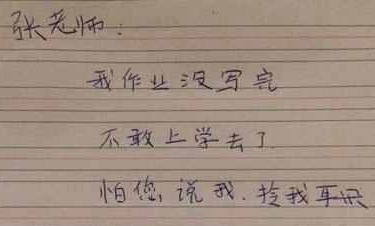 张老师：
我作业没写完
不敢上学去了
怕您说我．拎我耳朵